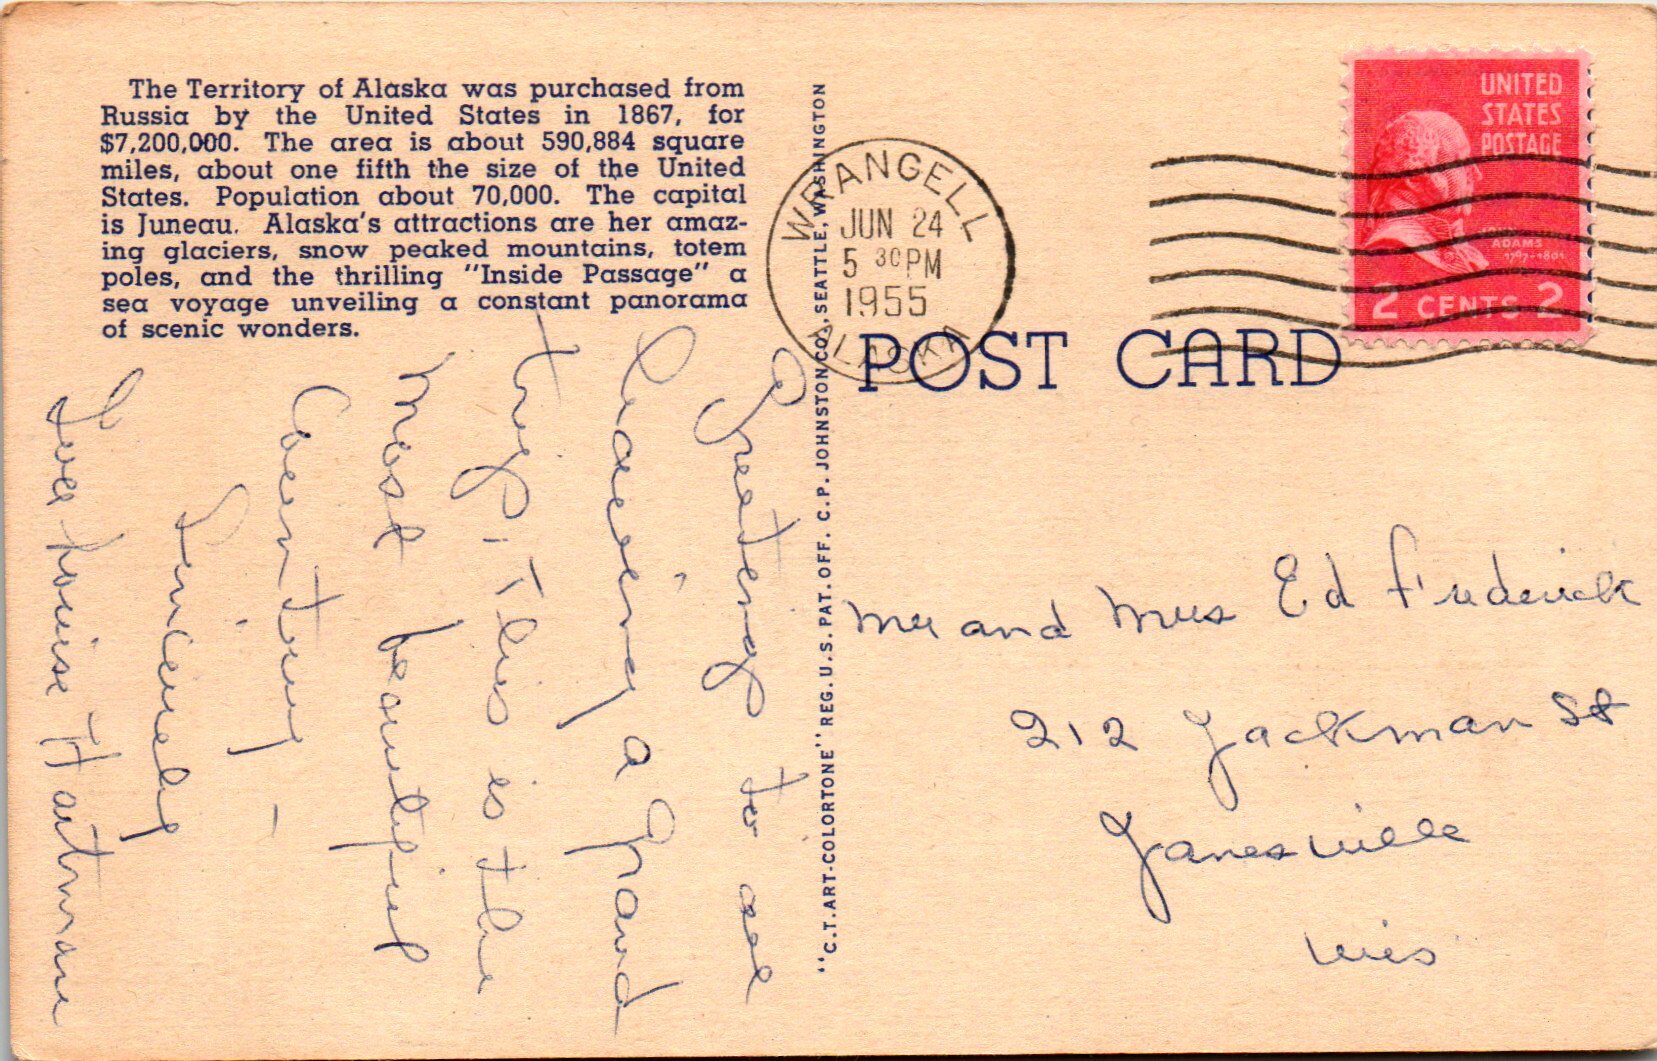 The Territory of Alaska was purchased from
Russia by the United States in 1867, for
$7,200,000. The area is about 590,884 square
miles, about one fifth the size of the United
States. Population about 70,000. The capital
is Juneau. Alaska's attractions are her amaz-
ing glaciers, snow peaked mountains, totem
poles, and the thrilling "Inside Passage" a
sea voyage unveiling a constant panorama
of scenic wonders.
Greetings to all
a grand
trip. This is the
most beautiful
Country -
Sincerely
Louise Hartman
"C.T. ART-COLORTONE" REG. U.S. PAT. OFF. C.P. JOHNSTON CO., SEATTLE, WASHINGTON
WRANGELL
JUN 24
5 30 PM
1955
ALASKA
UNITED
STATES
POSTAGE
ADAMS
1797-1801
2 CENTS 2
POST CARD
Mr and Mrs Ed Frederick
212 Jackman St
Janesville
Wis